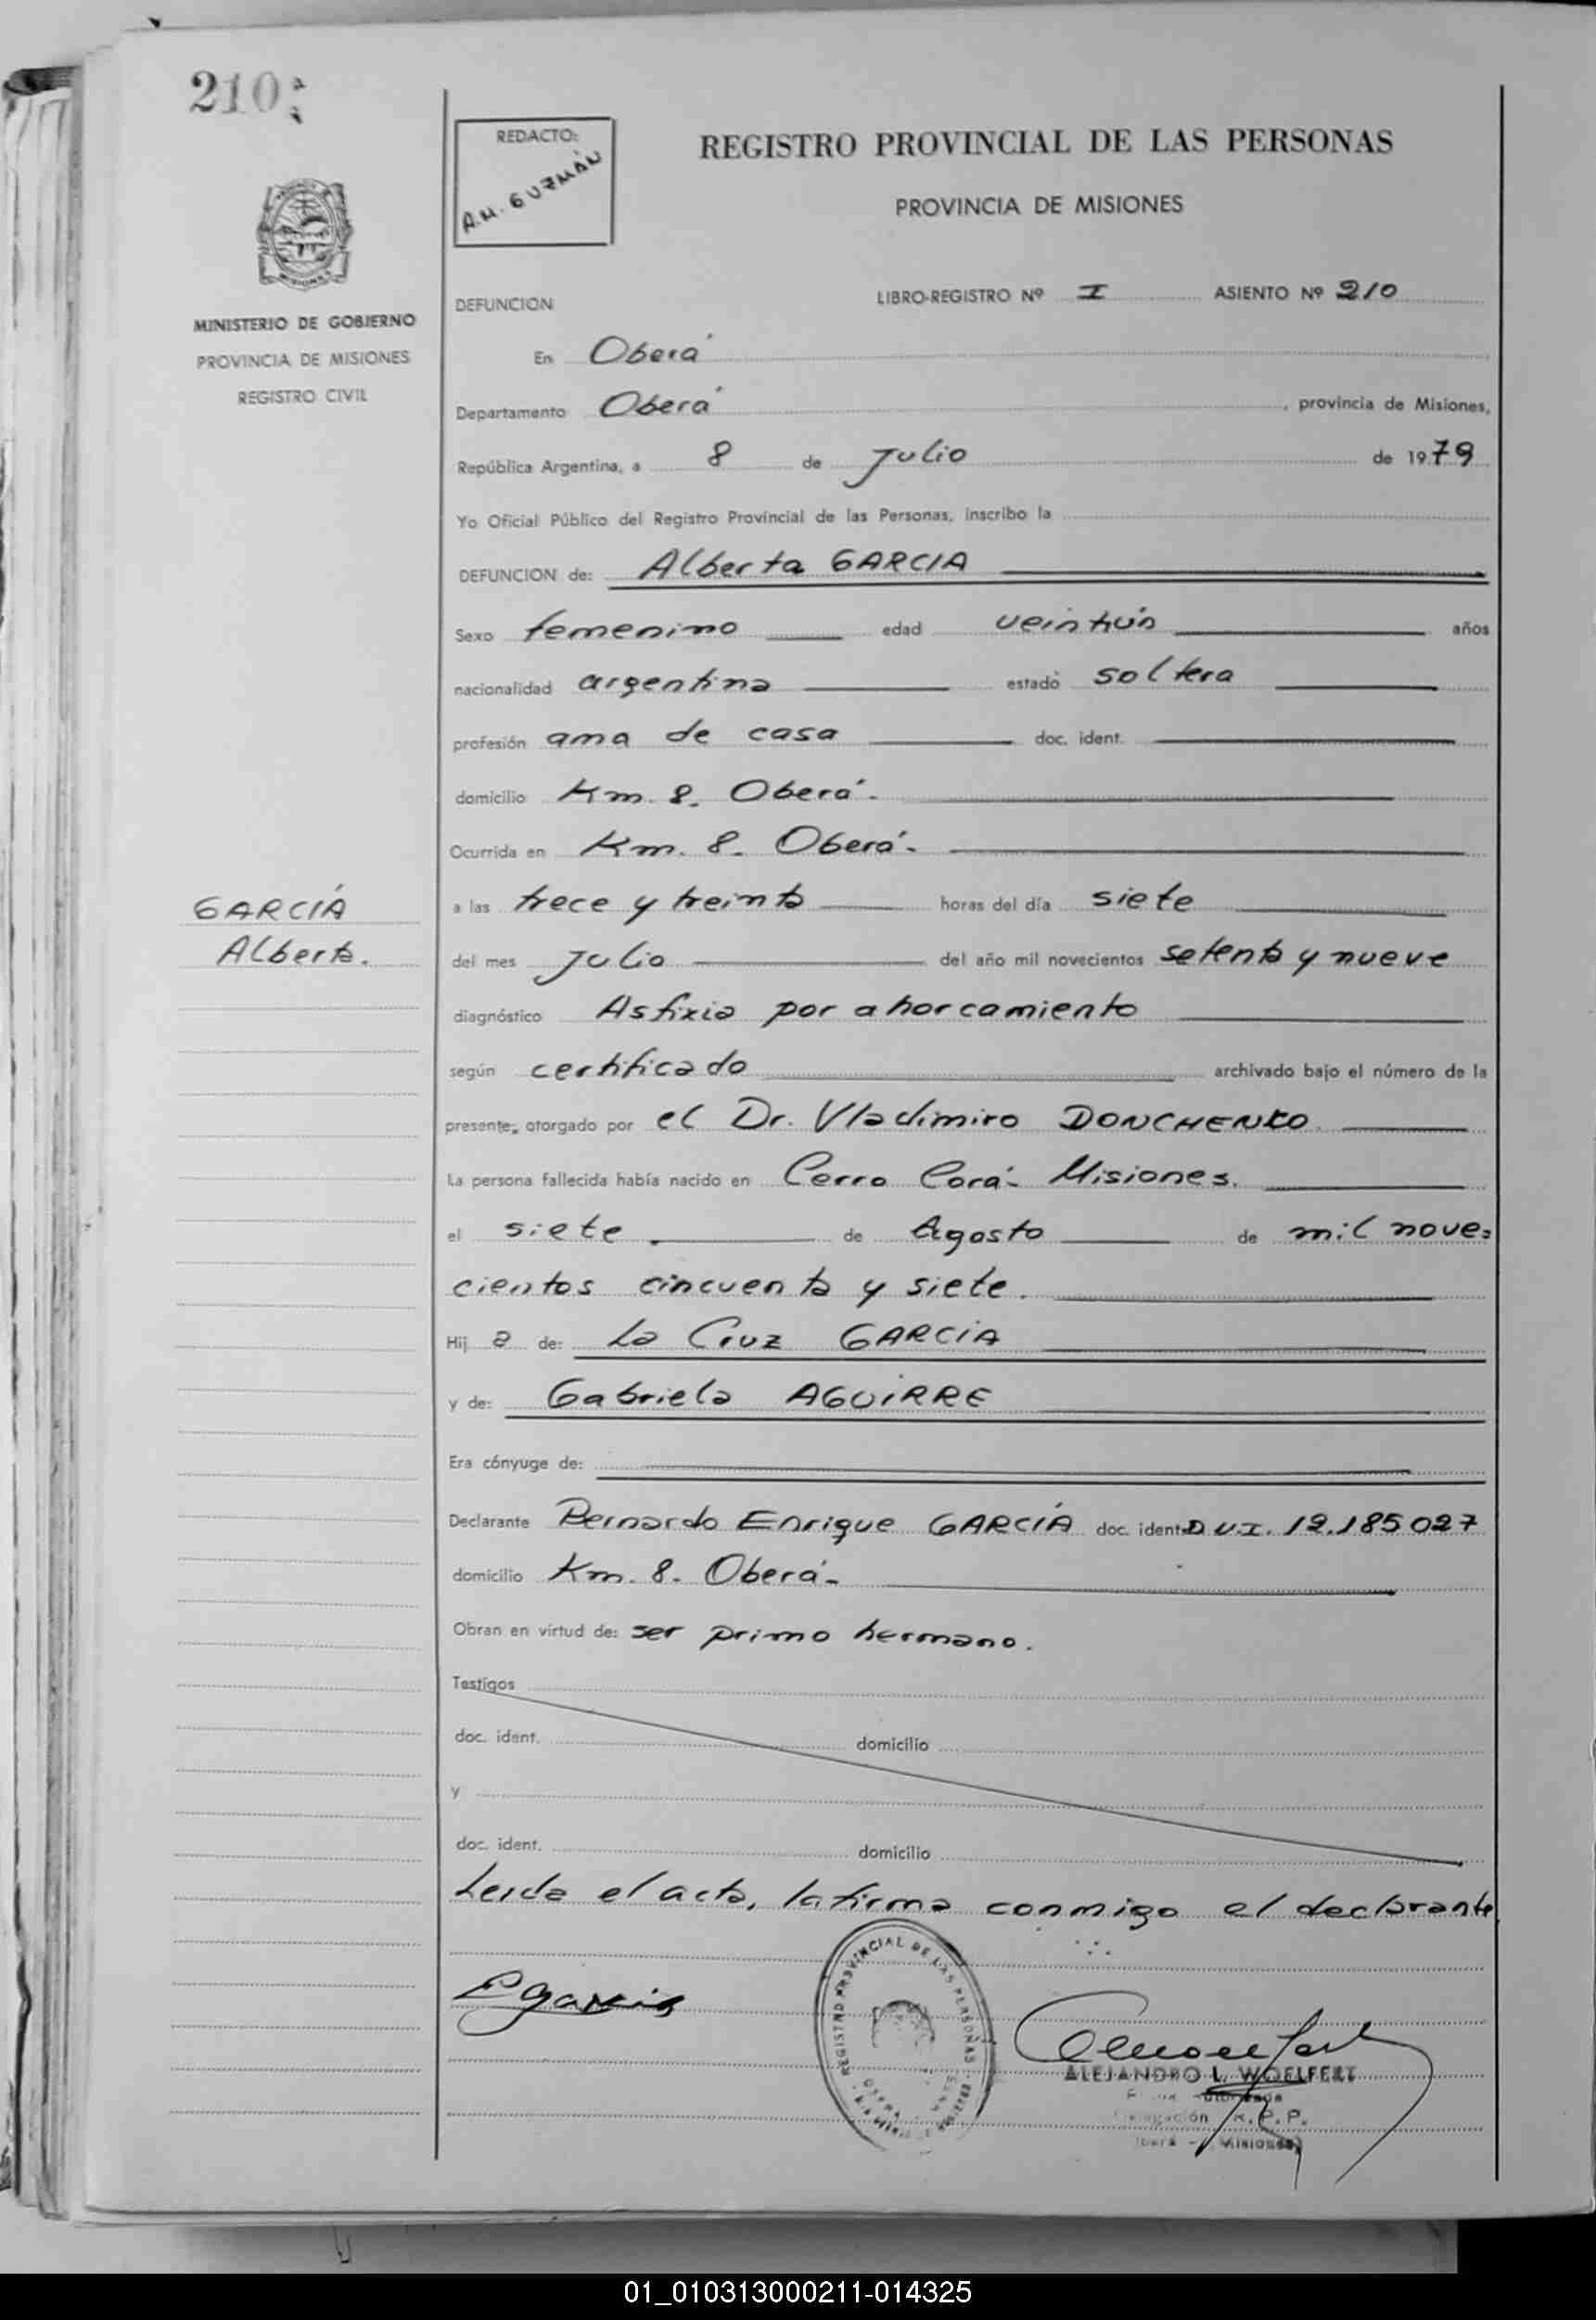 210
REDACTO:
A.H. GUZMÁN
REGISTRO PROVINCIAL DE LAS PERSONAS
PROVINCIA DE MISIONES
MISIONES
MINISTERIO DE GOBIERNO
PROVINCIA DE MISIONES
REGISTRO CIVIL
DEFUNCION
LIBRO-REGISTRO Nº I ASIENTO Nº 210
En Oberá
Departamento Oberá, provincia de Misiones,
República Argentina, a 8 de Julio de 1979
Yo Oficial Público del Registro Provincial de las Personas, inscribo la
DEFUNCION de: Alberta GARCIA
Sexo femenino edad veintiún años
nacionalidad argentina estado soltera
profesión ama de casa doc. ident.
domicilio Km. 8. Oberá.
Ocurrida en Km. 8. Oberá.
GARCÍA
Alberta.
a las trece y treinta horas del día siete
del mes Julio del año mil novecientos setenta y nueve
diagnóstico Asfixia por ahorcamiento
según certificado archivado bajo el número de la
presente, otorgado por el Dr. Vladimiro DONCHENKO.
La persona fallecida había nacido en Cerro Corá- Misiones.
el siete de Agosto de mil nove=
cientos cincuenta y siete.
Hij a de: La Cruz GARCIA
y de: Gabriela AGUIRRE
Era cónyuge de:
Declarante Bernardo Enrique GARCÍA doc. ident. 12.185027
domicilio Km. 8. Oberá-
Obran en virtud de: ser primo hermano.
Testigos
doc. ident. domicilio
y
doc. ident. domicilio
Leida el acta, la firma conmigo el declarante
REGISTRO PROVINCIAL DE LAS PERSONAS
ALEJANDRO L. WOELFERT
R.P.P.
Misiones
01_010313000211-014325